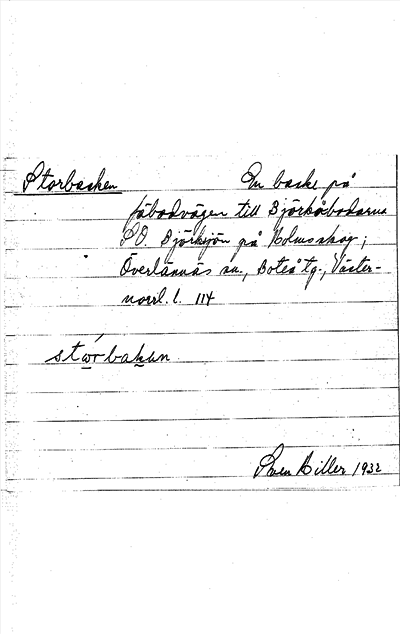 Storbacken En backe på
fäbodvägen till Björkåbodarna
SO. Björksjön på Holmsskog;
Överlännäs sn., Boteå tg., Väster-
norrl. l. 114
stwŕbakan
Sven Hiller 1932